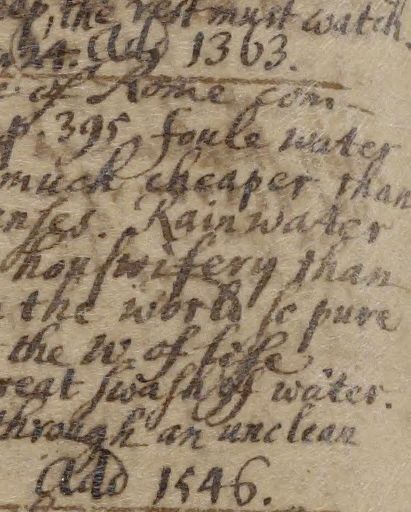 the rest must watch
24. Add 1363.
of Rome com-
p. 395 foule water
much cheaper than
enses. Rain water
houswifery than
the world so pure
the w. of life
reat swash of water.
through an unclean
Add 1546.